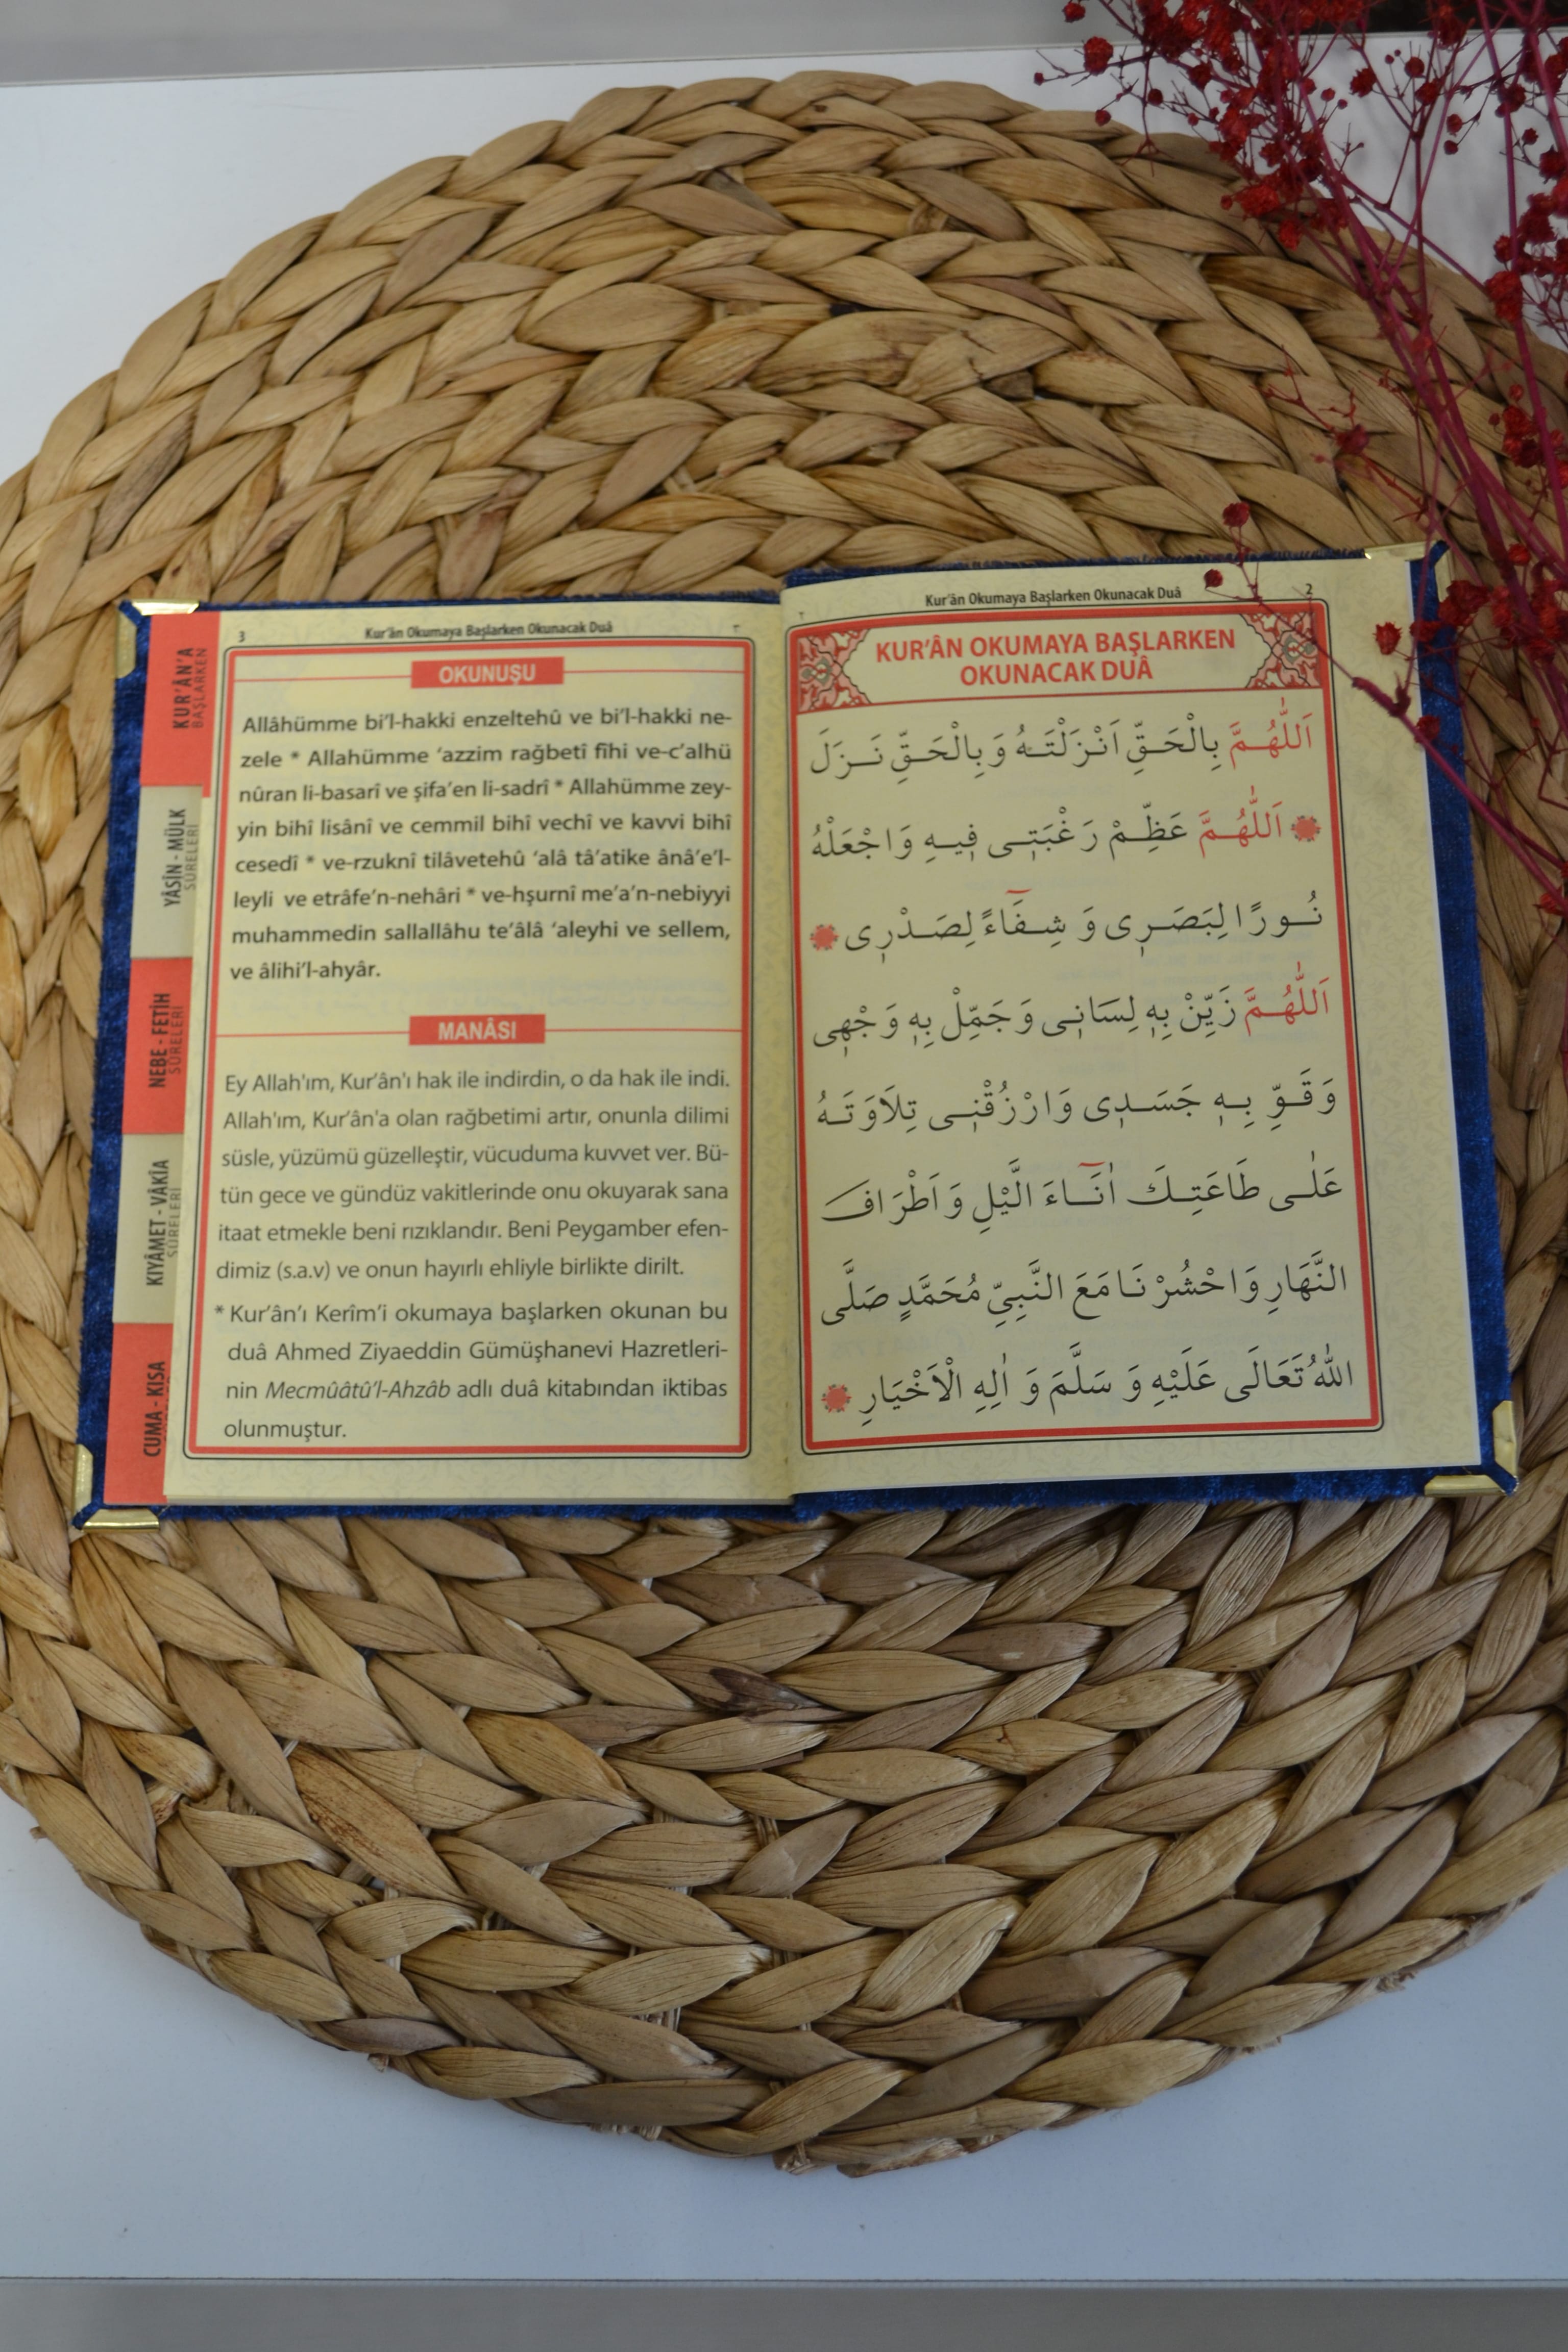 Kur'ân Okumaya Başlarken Okunacak Duâ
2
٢
KUR'ÂN OKUMAYA BAŞLARKEN
OKUNACAK DUÂ
اَللّٰهُمَّ بِالْحَقِّ اَنْزَلْتَهُ وَبِالْحَقِّ نَزَلَ
اَللّٰهُمَّ عَظِّمْ رَغْبَتٖى فٖيهِ وَاجْعَلْهُ
نُورًا لِبَصَرٖى وَ شِفَٓاءً لِصَدْرٖى
اَللّٰهُمَّ زَيِّنْ بِهٖ لِسَانٖى وَجَمِّلْ بِهٖ وَجْهٖى
وَقَوِّ بِهٖ جَسَدٖى وَارْزُقْنٖى تِلَاوَتَهُ
عَلٰى طَاعَتِكَ اٰنَٓاءَ الَّيْلِ وَاَطْرَافَ
النَّهَارِ وَاحْشُرْنَا مَعَ النَّبِيِّ مُحَمَّدٍ صَلَّى
اللّٰهُ تَعَالَى عَلَيْهِ وَ سَلَّمَ وَ اٰلِهِ الْاَخْيَارِ
3
Kur'ân Okumaya Başlarken Okunacak Duâ
٣
OKUNUŞU
Allâhümme bi'l-hakki enzeltehû ve bi'l-hakki ne-
zele * Allahümme 'azzim rağbetî fîhi ve-c'alhü
nûran li-basarî ve şifa'en li-sadrî * Allahümme zey-
yin bihî lisânî ve cemmil bihî vechî ve kavvi bihî
cesedî * ve-rzuknî tilâvetehû 'alâ tâ'atike ânâ'e'l-
leyli ve etrâfe'n-nehâri * ve-hşurnî me'a'n-nebiyyi
muhammedin sallallâhu te'âlâ 'aleyhi ve sellem,
ve âlihi'l-ahyâr.
MANÂSI
Ey Allah'ım, Kur'ân'ı hak ile indirdin, o da hak ile indi.
Allah'ım, Kur'ân'a olan rağbetimi artır, onunla dilimi
süsle, yüzümü güzelleştir, vücuduma kuvvet ver. Bü-
tün gece ve gündüz vakitlerinde onu okuyarak sana
itaat etmekle beni rızıklandır. Beni Peygamber efen-
dimiz (s.a.v) ve onun hayırlı ehliyle birlikte dirilt.
* Kur'ân'ı Kerîm'i okumaya başlarken okunan bu
duâ Ahmed Ziyaeddin Gümüşhanevi Hazretleri-
nin Mecmûâtû'l-Ahzâb adlı duâ kitabından iktibas
olunmuştur.
KUR'ÂN'A
BAŞLARKEN
YÂSÎN - MÜLK
SÛRELERİ
NEBE - FETİH
SÛRELERİ
KIYÂMET - VÂKIA
SÛRELERİ
CUMA - KISA